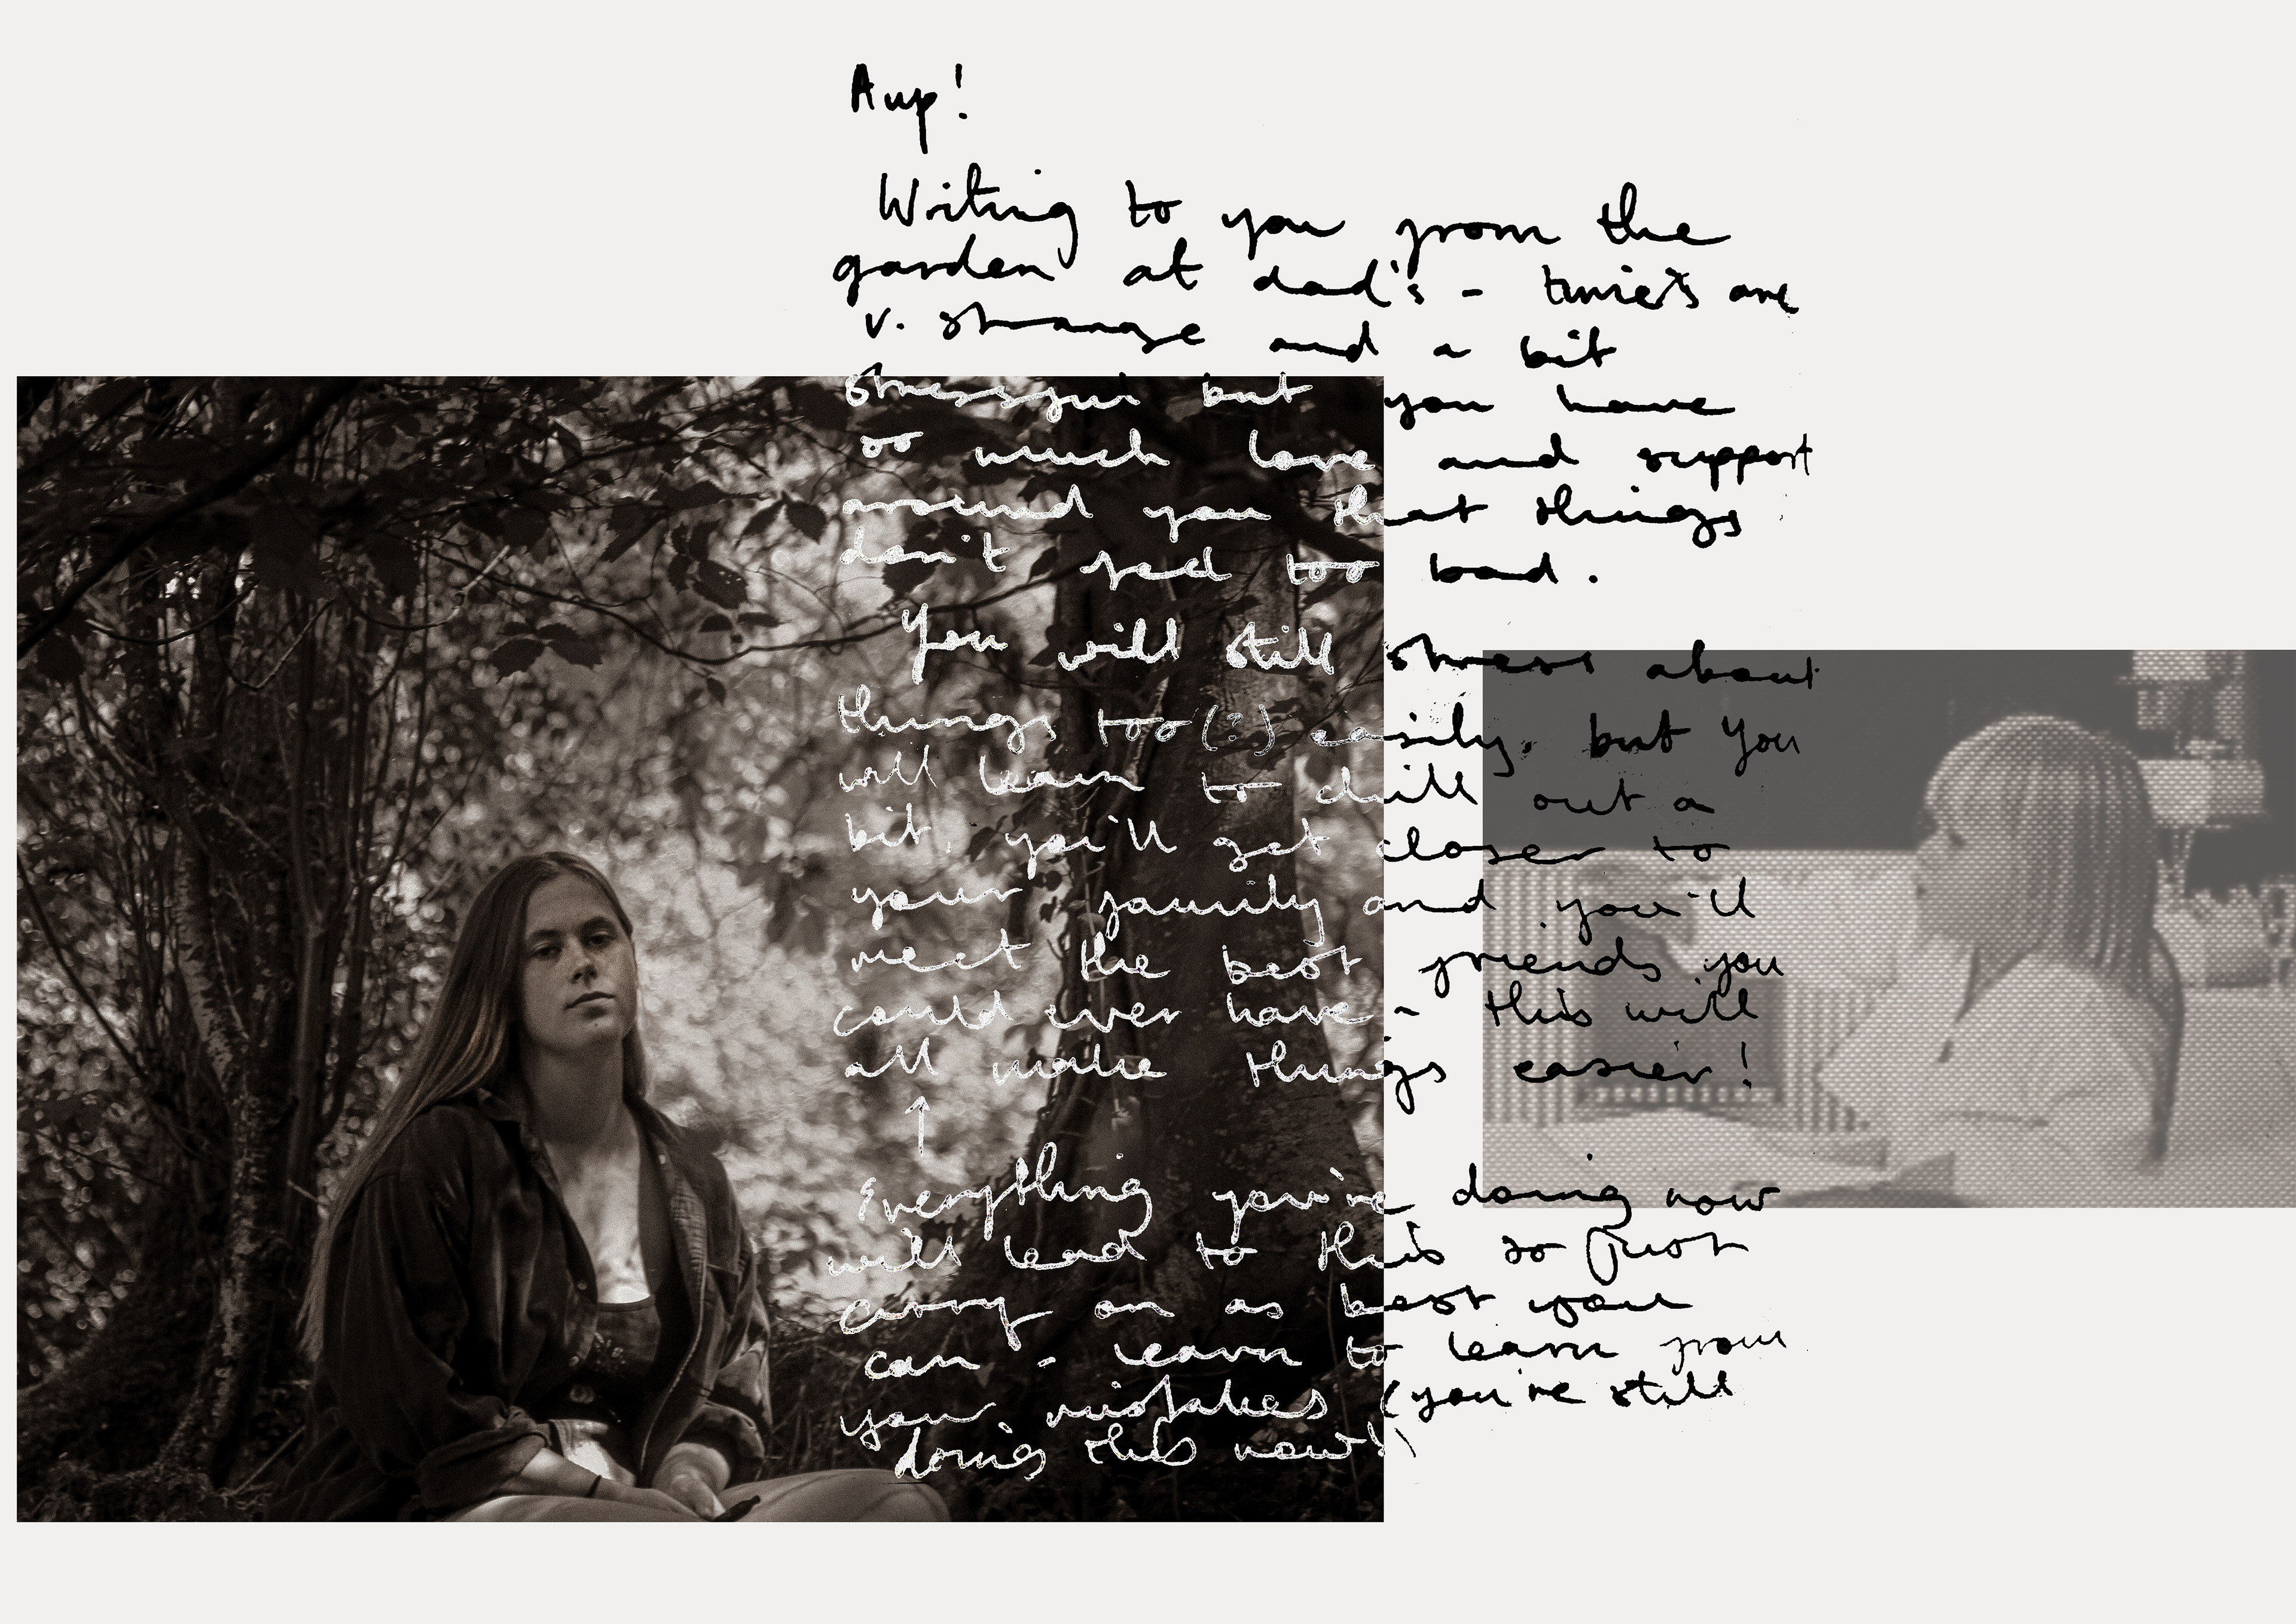 Aup!
Writing to you from the
garden at dad's - times are
v. strange and a bit
stressful but you have
so much love and support
around you that things
don't feel too bad.
You will still stress about
things too(?) easily, but you
will learn to chill out a
bit, you'll get closer to
your family and you'll
meet the best friends you
could ever have - this will
all make things easier!
↑
Everything you're doing now
will lead to this so just
carry on as best you
can - learn to learn from
your mistakes (you're still
doing this now!)